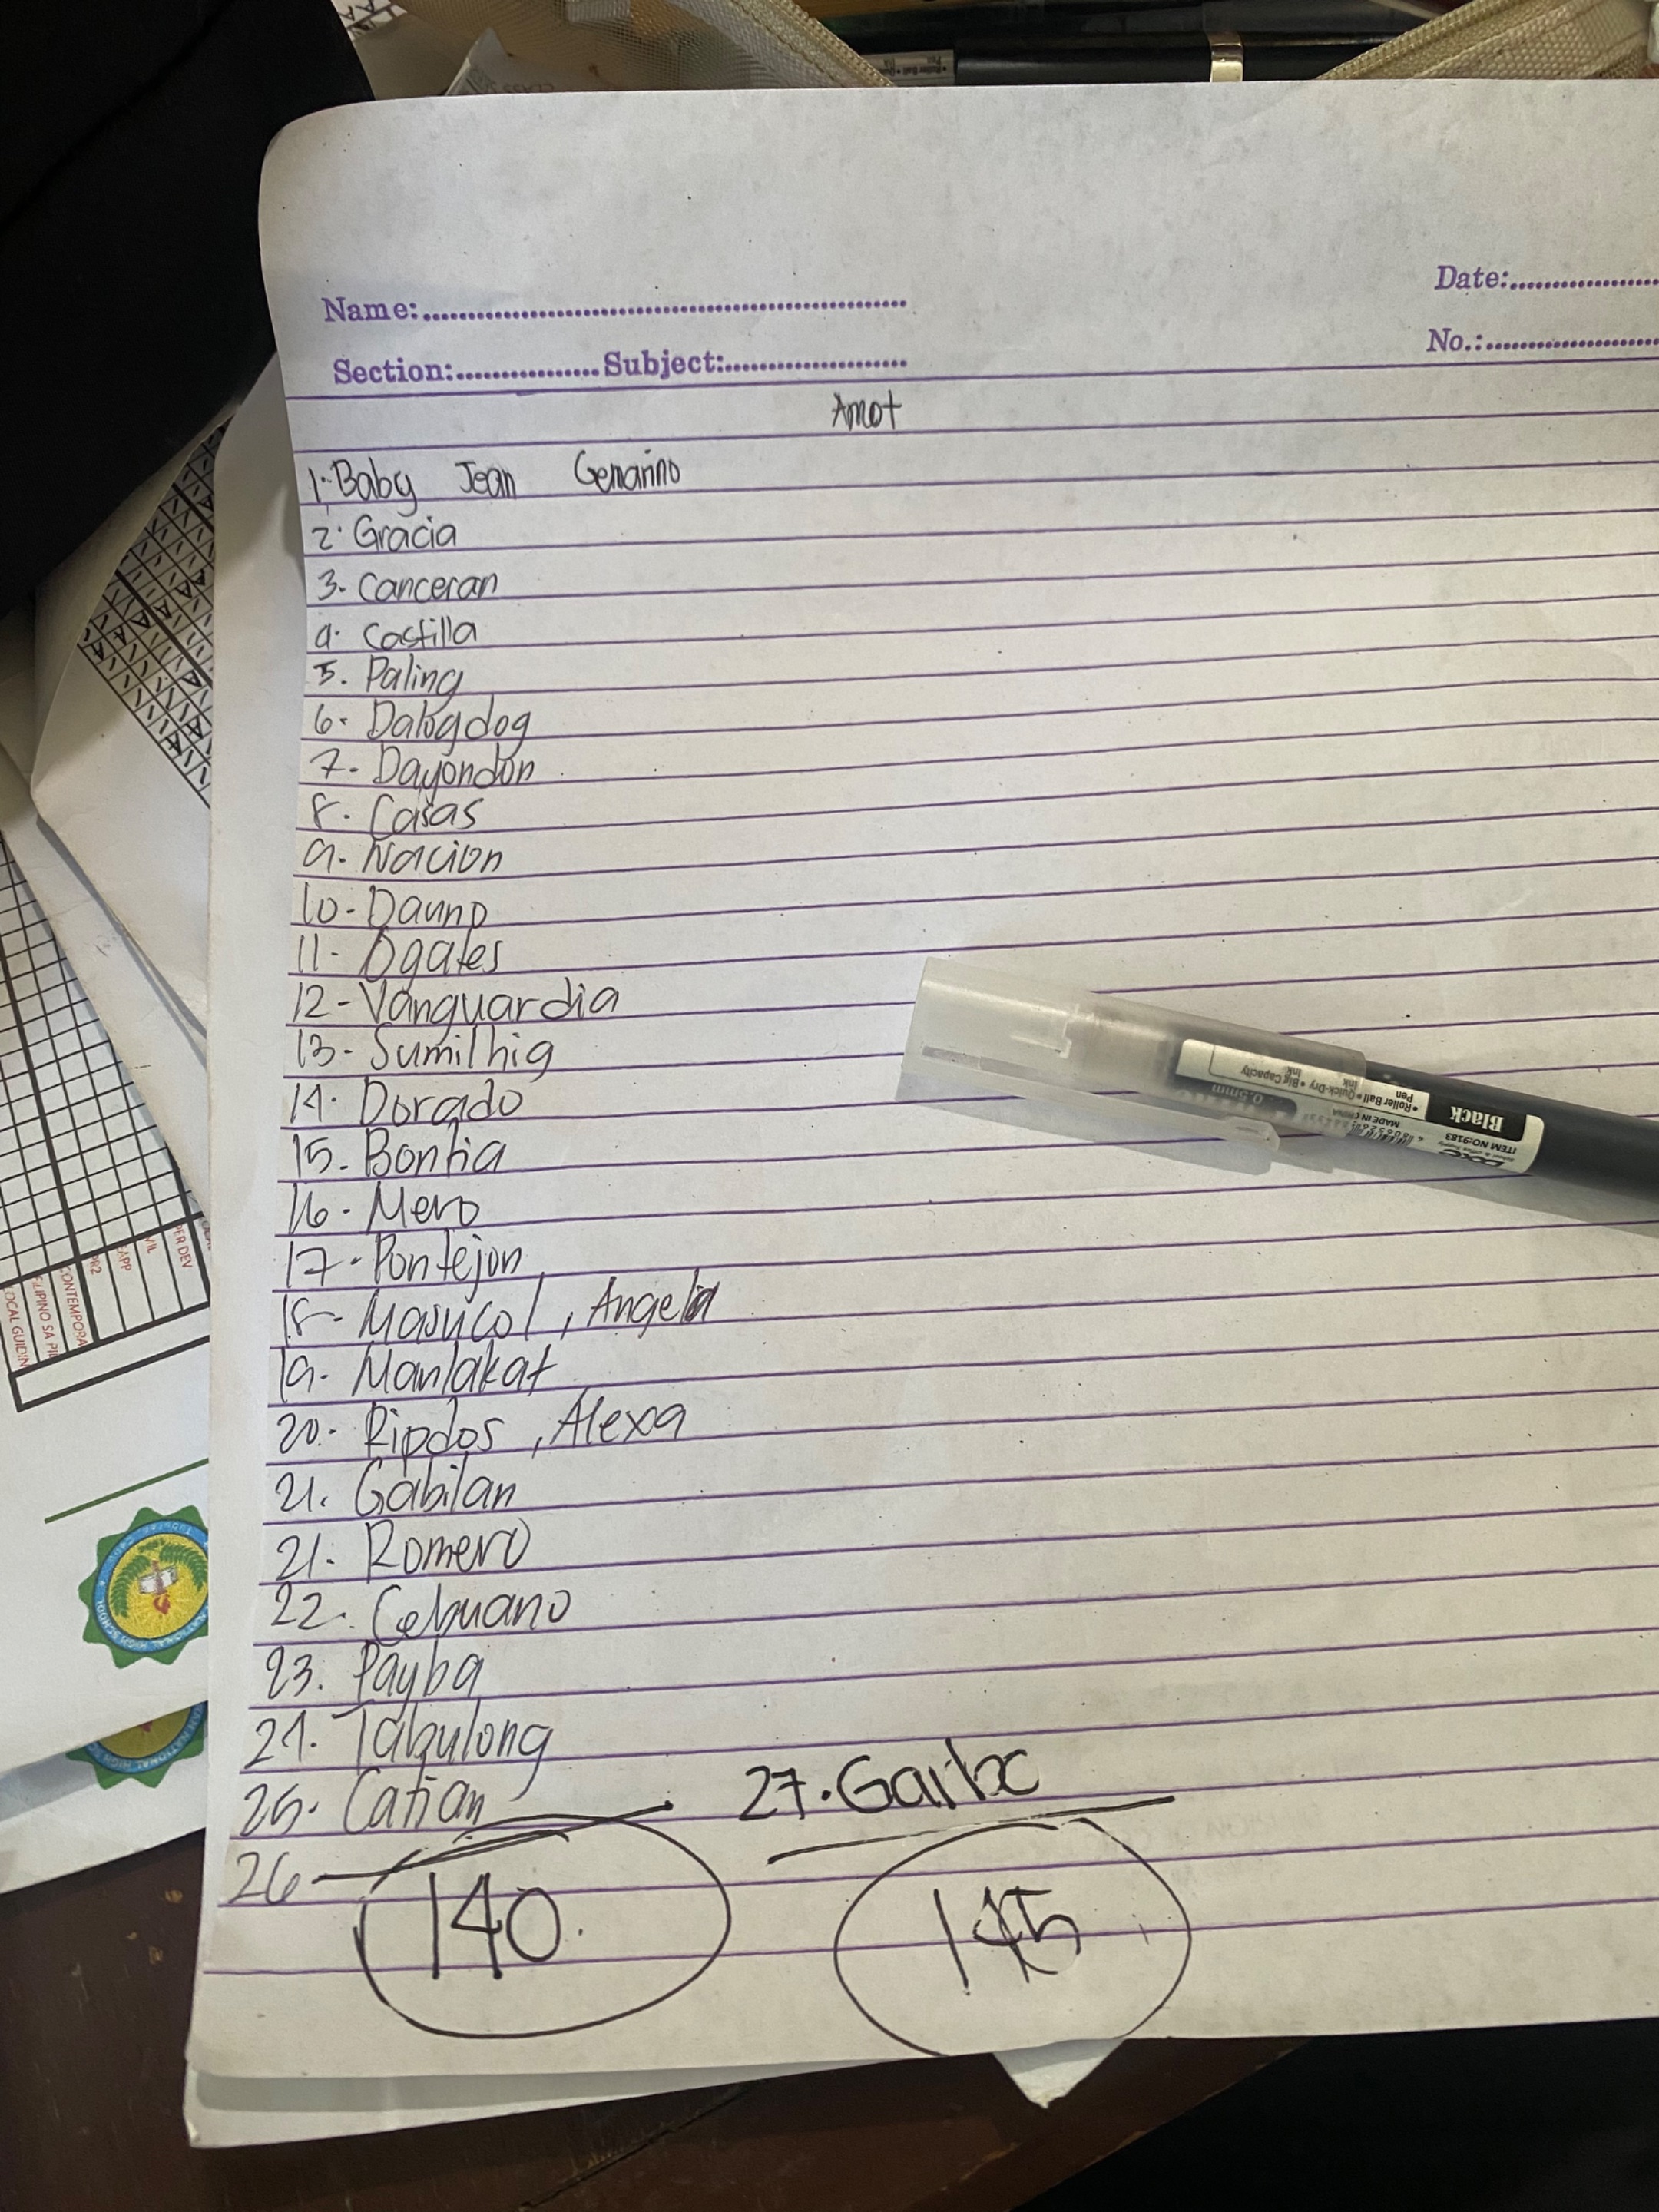 Name:
Date:
Section: Subject:
No.:
Amot
1. Baby Jean Genarino
2. Gracia
3. Canceran
4. Castilla
5. Paling
6. Dalogdog
7. Dayondon
8. Casas
9. Nacion
10- Dauno
11- Ogates
12- Vanguardia
13- Sumilhig
14. Dorado
15. Bontia
16- Mero
17- Pontejon
18- Masucol, Angela
19- Manlakat
20- Ripdos, Alexa
21. Gabilan
21. Romero
22. Cebuano
23. Payba
24. Tabulong
25. Catian
27. Garbc
26
140.
145
Black
Roller Ball • Quick-Dry • Big Capacity
Pen Ink Ink
0.5mm
MADE IN CHINA
ITEM NO:9183
PER DEV
EAPP
PR2
CONTEMPORA
FILIPINO SA PIL
LOCAL GUIDIN
NATIONAL HIGH SCHOOL